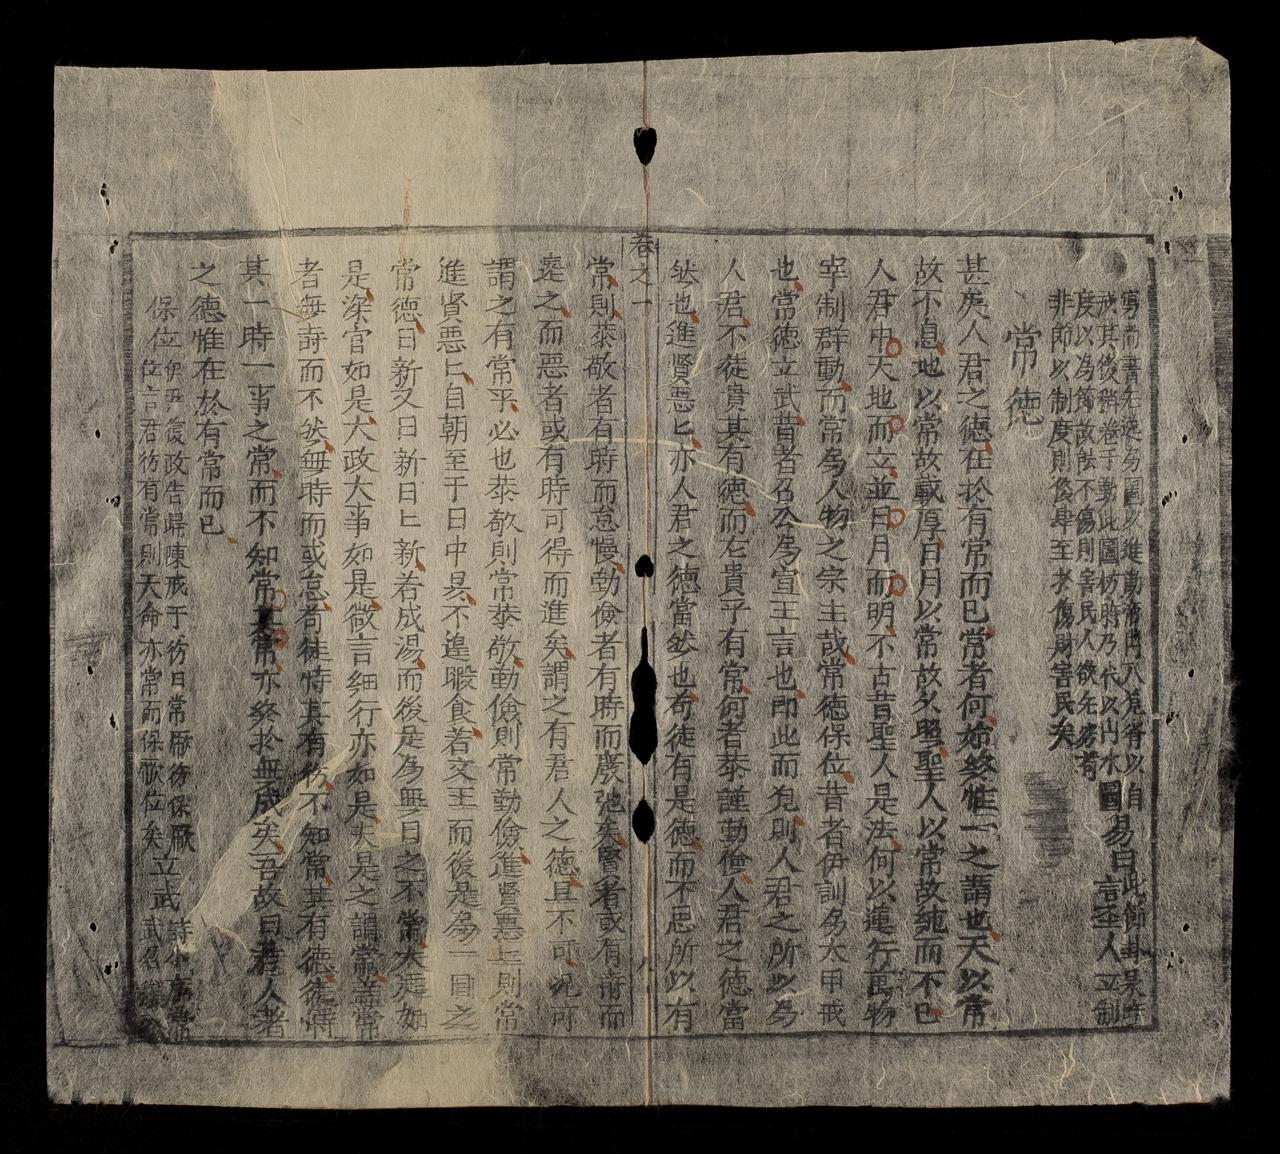 寫尚書無逸為圖以進勸帝出入觀省以自
戒其後稍卷于勤此圖朽腐乃代以山水圖易曰此節卦彖辭言聖人立制
度以為節故能不傷則害民人欲無窮苟
非節以制度則侈肆至於傷財害民矣
常德
甚矣人君之德在於有常而已常者何始終惟一之謂也天以常
故不息地以常故載厚日月以常故久照聖人以常故純而不已
人君中天地而立並日月而明不古昔聖人是法何以運行萬物
宰制群動而常為人物之宗主哉常德保位昔者伊訓為大甲戒
也常德立武昔者召公為宣王言也即此而觀則人君之所以為
人君不徒貴其有德而尤貴乎有常何者恭謹勤儉人君之德當
然也進賢惡匕亦人君之德當然也苟徒有是德而不思所以有
卷之一
八
常則恭敬者有時而怠慢勤儉者有時而廢弛矣賢者或有時而
遠之而惡者或有時可得而進矣謂之有君人之德且不可況可
謂之有常乎必也恭敬則常恭敬勤儉則常勤儉進賢惡匕則常
進賢惡匕自朝至于日中昃不遑暇食者文王而後是為一日之
常德日新又日新日匕新若成湯而後是為無日之不常大廷如
是深宮如是大政大事如是微言細行亦如是夫是之謂常善常
者每詩而不然無時而或怠苟徒恃其有彷不知常其有德徒恃
其一時一事之常而不知常其常亦終於無成矣吾故曰君人者
之德惟在於有常而已
保位伊尹復政告歸陳戒于彷曰常厥彷保厥
位言君彷有常則天命亦常而保厥位矣立武詩小序常
武召